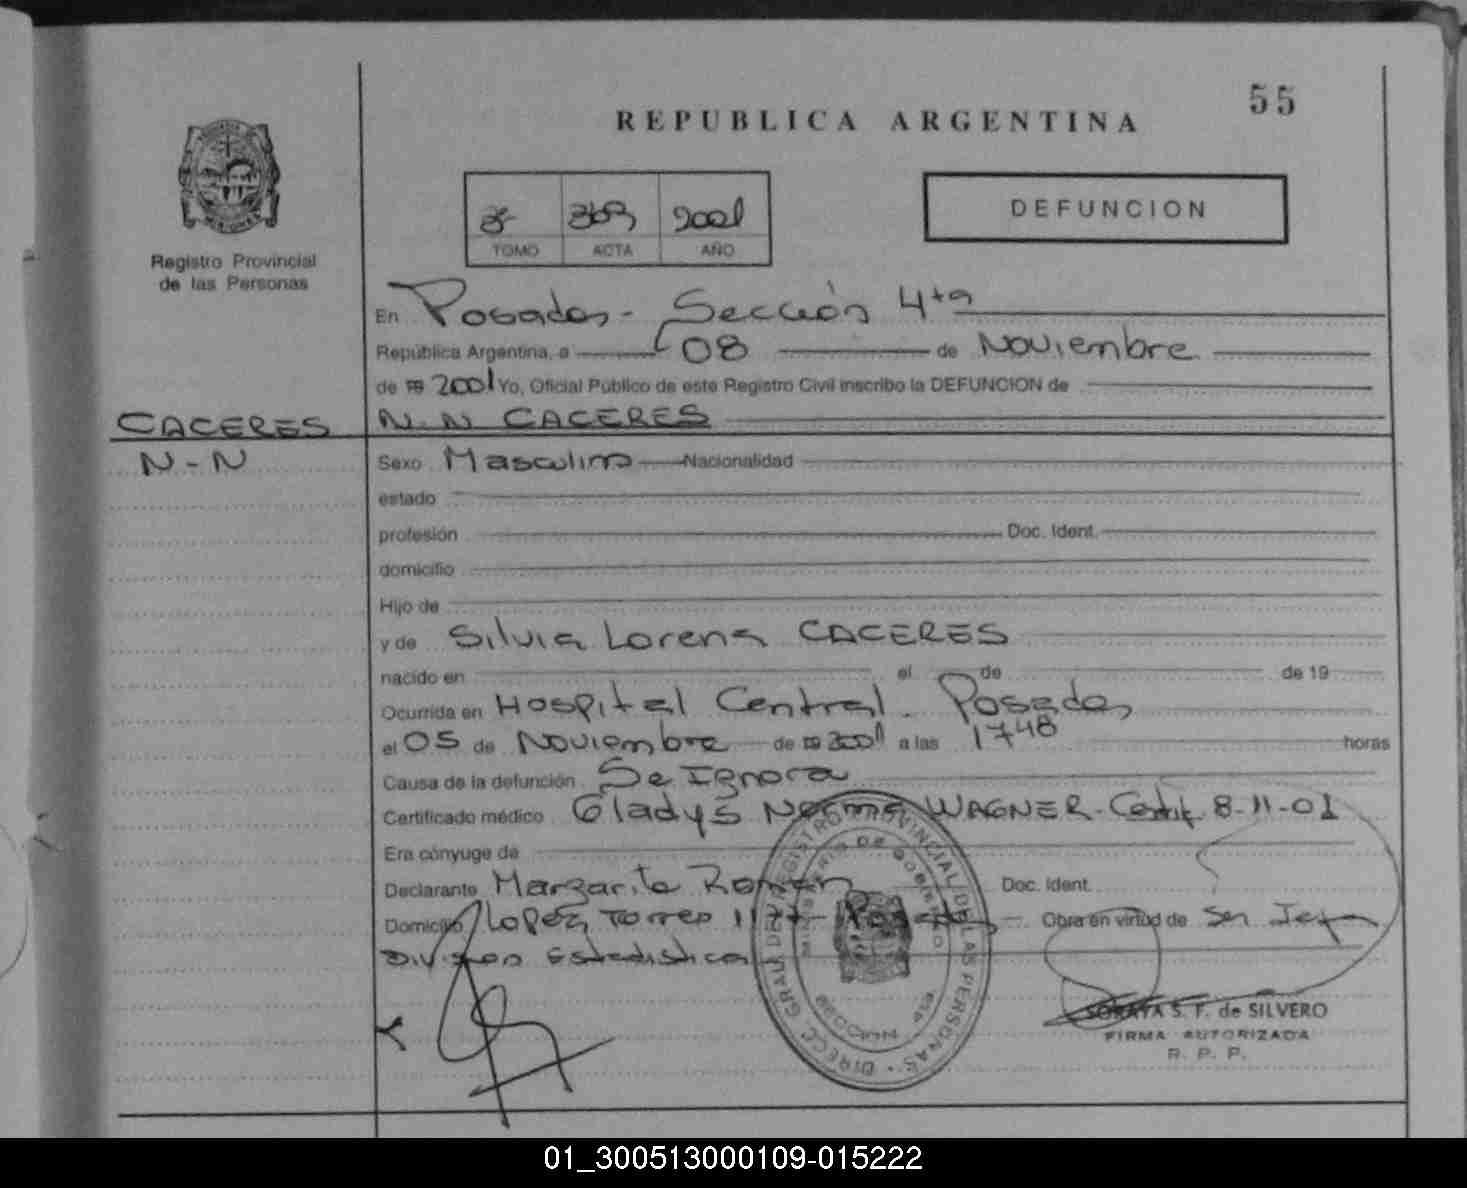 55
REPUBLICA ARGENTINA
2001
DEFUNCION
TOMO ACTA AÑO
Registro Provincial
de las Personas
En Posadas - Sección 4ta
República Argentina, a 08 de Noviembre
de 2001 Yo, Oficial Público de este Registro Civil inscribo la DEFUNCION de
CACERES N.N CACERES
N-N
Sexo Masculino Nacionalidad
estado
profesión Doc. Ident.
domicilio
Hijo de
y de Silvia Lorena CACERES
nacido en el de de 19
Ocurrida en Hospital Central - Posadas
el 05 de Noviembre de 2001 a las 1748 horas
Causa de la defunción Se Ignora
Certificado médico Gladys Norma WAGNER - Certif. 8-11-01
Era cónyuge de
Declarante Margarita Román Doc. Ident.
Domicilio Lopez Torres Posadas Obra en virtud de Ser Jefa
Division Estadistica
DIRECC. GRAL. DEL REGISTRO PROVINCIAL DE LAS PERSONAS
MINISTERIO DE GOBIERNO
SECCION
SORAYA S. F. de SILVERO
FIRMA AUTORIZADA
R. P. P.
01_300513000109-015222